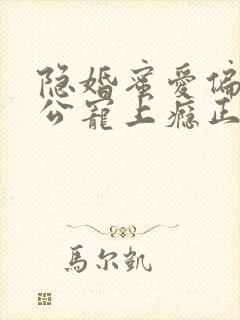 隐婚蜜爱偏
公宠上瘾正
馬尔凯